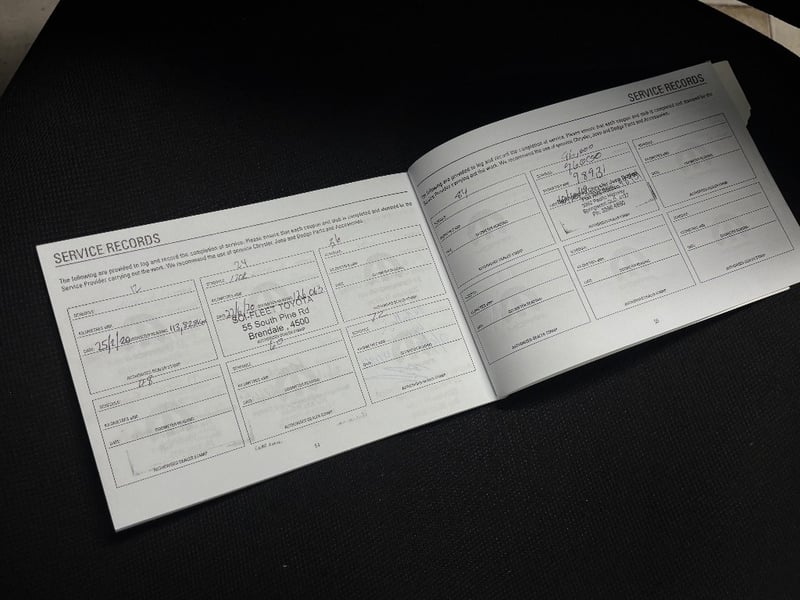 SERVICE RECORDS
The following are provided to log and record the completion of service. Please ensure that each coupon and stub is completed and stamped by the
Service Provider carrying out the work. We recommend the use of genuine Chrysler, Jeep and Dodge Parts and Accessories.
12
SCHEDULE:
KILOMETRES KM#:
DATE: 25/2/20 ODOMETER READING: 113,828km
AUTHORISED DEALER STAMP
24
SCHEDULE:
120K
KILOMETRES KM#:
DATE: ODOMETER READING: 126,063
SCI-FLEET TOYOTA
55 South Pine Rd
Brendale, 4500
AUTHORISED DEALER STAMP
36
SCHEDULE:
KILOMETRES KM#:
DATE: ODOMETER READING:
AUTHORISED DEALER STAMP
48
SCHEDULE:
KILOMETRES KM#:
DATE: ODOMETER READING:
AUTHORISED DEALER STAMP
60
SCHEDULE:
KILOMETRES KM#:
DATE: ODOMETER READING:
AUTHORISED DEALER STAMP
72
SCHEDULE:
KILOMETRES KM#:
DATE: ODOMETER READING:
AUTHORISED DEALER STAMP
SERVICE RECORDS
The following are provided to log and record the completion of service. Please ensure that each coupon and stub is completed and stamped by the
Service Provider carrying out the work. We recommend the use of genuine Chrysler, Jeep and Dodge Parts and Accessories.
84
SCHEDULE:
KILOMETRES KM#:
DATE: ODOMETER READING:
AUTHORISED DEALER STAMP
96,000
SCHEDULE:
KILOMETRES KM#:
98931
Pacific Highway
AUTHORISED DEALER STAMP
SCHEDULE:
KILOMETRES KM#:
DATE: ODOMETER READING:
AUTHORISED DEALER STAMP
SCHEDULE:
KILOMETRES KM#:
DATE: ODOMETER READING:
AUTHORISED DEALER STAMP
SCHEDULE:
KILOMETRES KM#:
DATE: ODOMETER READING:
AUTHORISED DEALER STAMP
SCHEDULE:
KILOMETRES KM#:
DATE: ODOMETER READING:
AUTHORISED DEALER STAMP